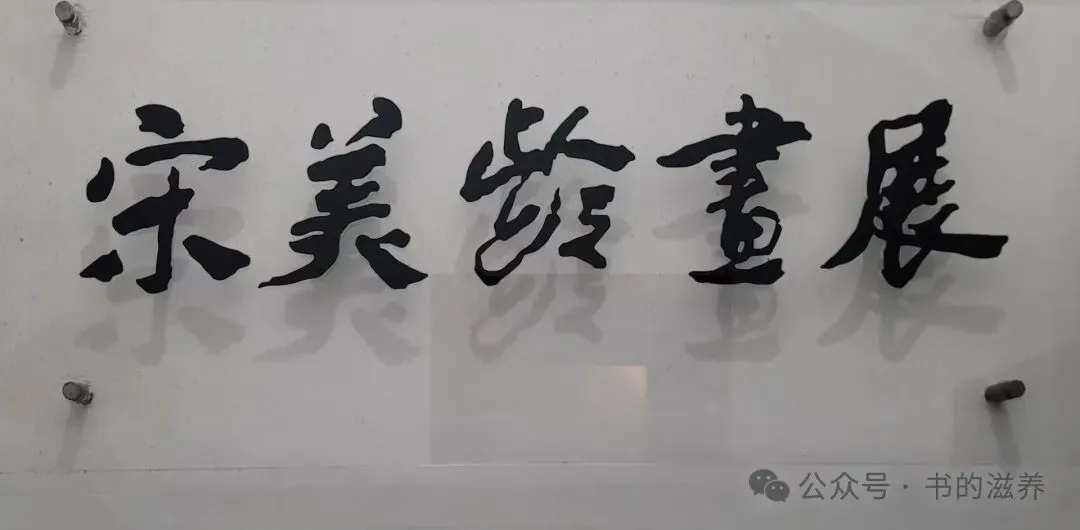 宋美龄畫展
公众号 · 书的滋养